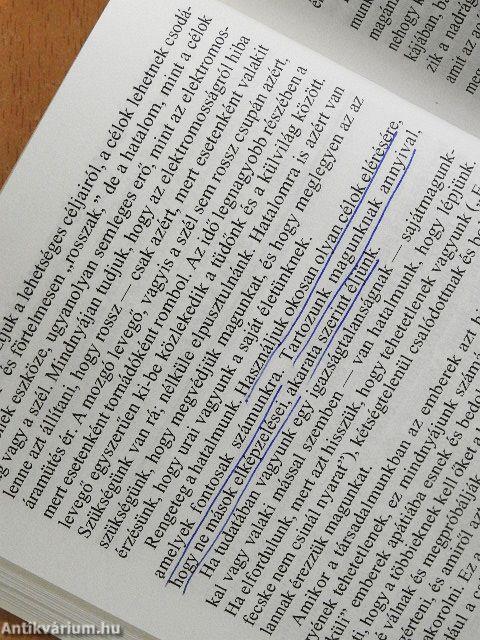 munk
nehogy k
kájában, b
zik a nadrág
amit az
me
juk a lehetséges céljairól, a célok lehetnek csodá-
és förtelmesen „rosszak,” de a hatalom, mint a célok
nek eszköze, ugyanolyan semleges erő, mint az elektromos-
g vagy a szél. Mindnyájan tudjuk, hogy az elektromosságról hiba
lenne azt állítani, hogy rossz — csak azért, mert esetenként valakit
áramütés ér. A mozgó levegő, vagyis a szél sem rossz csupán azért,
mert esetenként tornádóként rombol. Az idő legnagyobb részében a
levegő egyszerűen ki-be közlekedik a tüdőnk és a külvilág között.
Szükségünk van rá, nélküle elpusztulnánk. Hatalomra is azért van
szükségünk, hogy megvédjük magunkat, és hogy meglegyen az az
érzésünk, hogy urai vagyunk a saját életünknek.
Rengeteg a hatalmunk. Használjuk okosan olyan célok elérésére,
amelyek fontosak számunkra. Tartozunk magunknak annyival,
hogy ne mások elképzelései, akarata szerint éljünk.
Ha tudatában vagyunk egy igazságtalanságnak — sajátmagunk-
kal vagy valaki mással szemben — van hatalmunk, hogy lépjünk.
Ha elfordulunk, mert azt hisszük, hogy tehetetlenek vagyunk („E
fecske nem csinál nyarat”), kétségtelenül csalódottnak és bo
lannak érezzük magunkat.
Amikor a társadalmunkban az emberek azt
rének tehetetlenek, ez mindnyájunk számár
tüli” emberek apátiába esnek és bed
ti, hogy a többieknek kell őket a
é válnak és megpróbálják
érteni, és amiről azt
borolni. Ez a